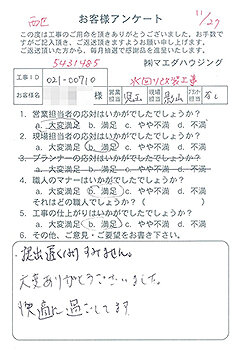 西E 11/27
お客様アンケート
この度は工事のご用命を頂きありがとうございました。お手数で
すがご記入頂き、ご返送頂きますようお願い申し上げます。
ご返送頂いた方から、毎月抽選で感謝品をご進呈いたします。
5431485 ㈱マエダハウジング
工事ID 021-00710 水回り改装工事
お客様名 様 営業担当 児玉 現場担当 影山 プランナー担当 なし
1. 営業担当者の応対はいかがでしたでしょうか?
a. 大変満足 b. 満足 c. やや不満 d. 不満
2. 現場担当者の応対はいかがでしたでしょうか?
a. 大変満足 b. 満足 c. やや不満 d. 不満
3. プランナーの応対はいかがでしたでしょうか?
a. 大変満足 b. 満足 c. やや不満 d. 不満
4. 職人のマナーはいかがでしたでしょうか?
a. 大変満足 b. 満足 c. やや不満 d. 不満
それはどの職人でしょうか? ( )
5. 工事の仕上がりはいかがでしたでしょうか?
a. 大変満足 b. 満足 c. やや不満 d. 不満
6. その他、ご意見・ご要望をお書き下さい。
提出遅くなりすみません。
大変ありがとうございました。
快適に過ごしてます